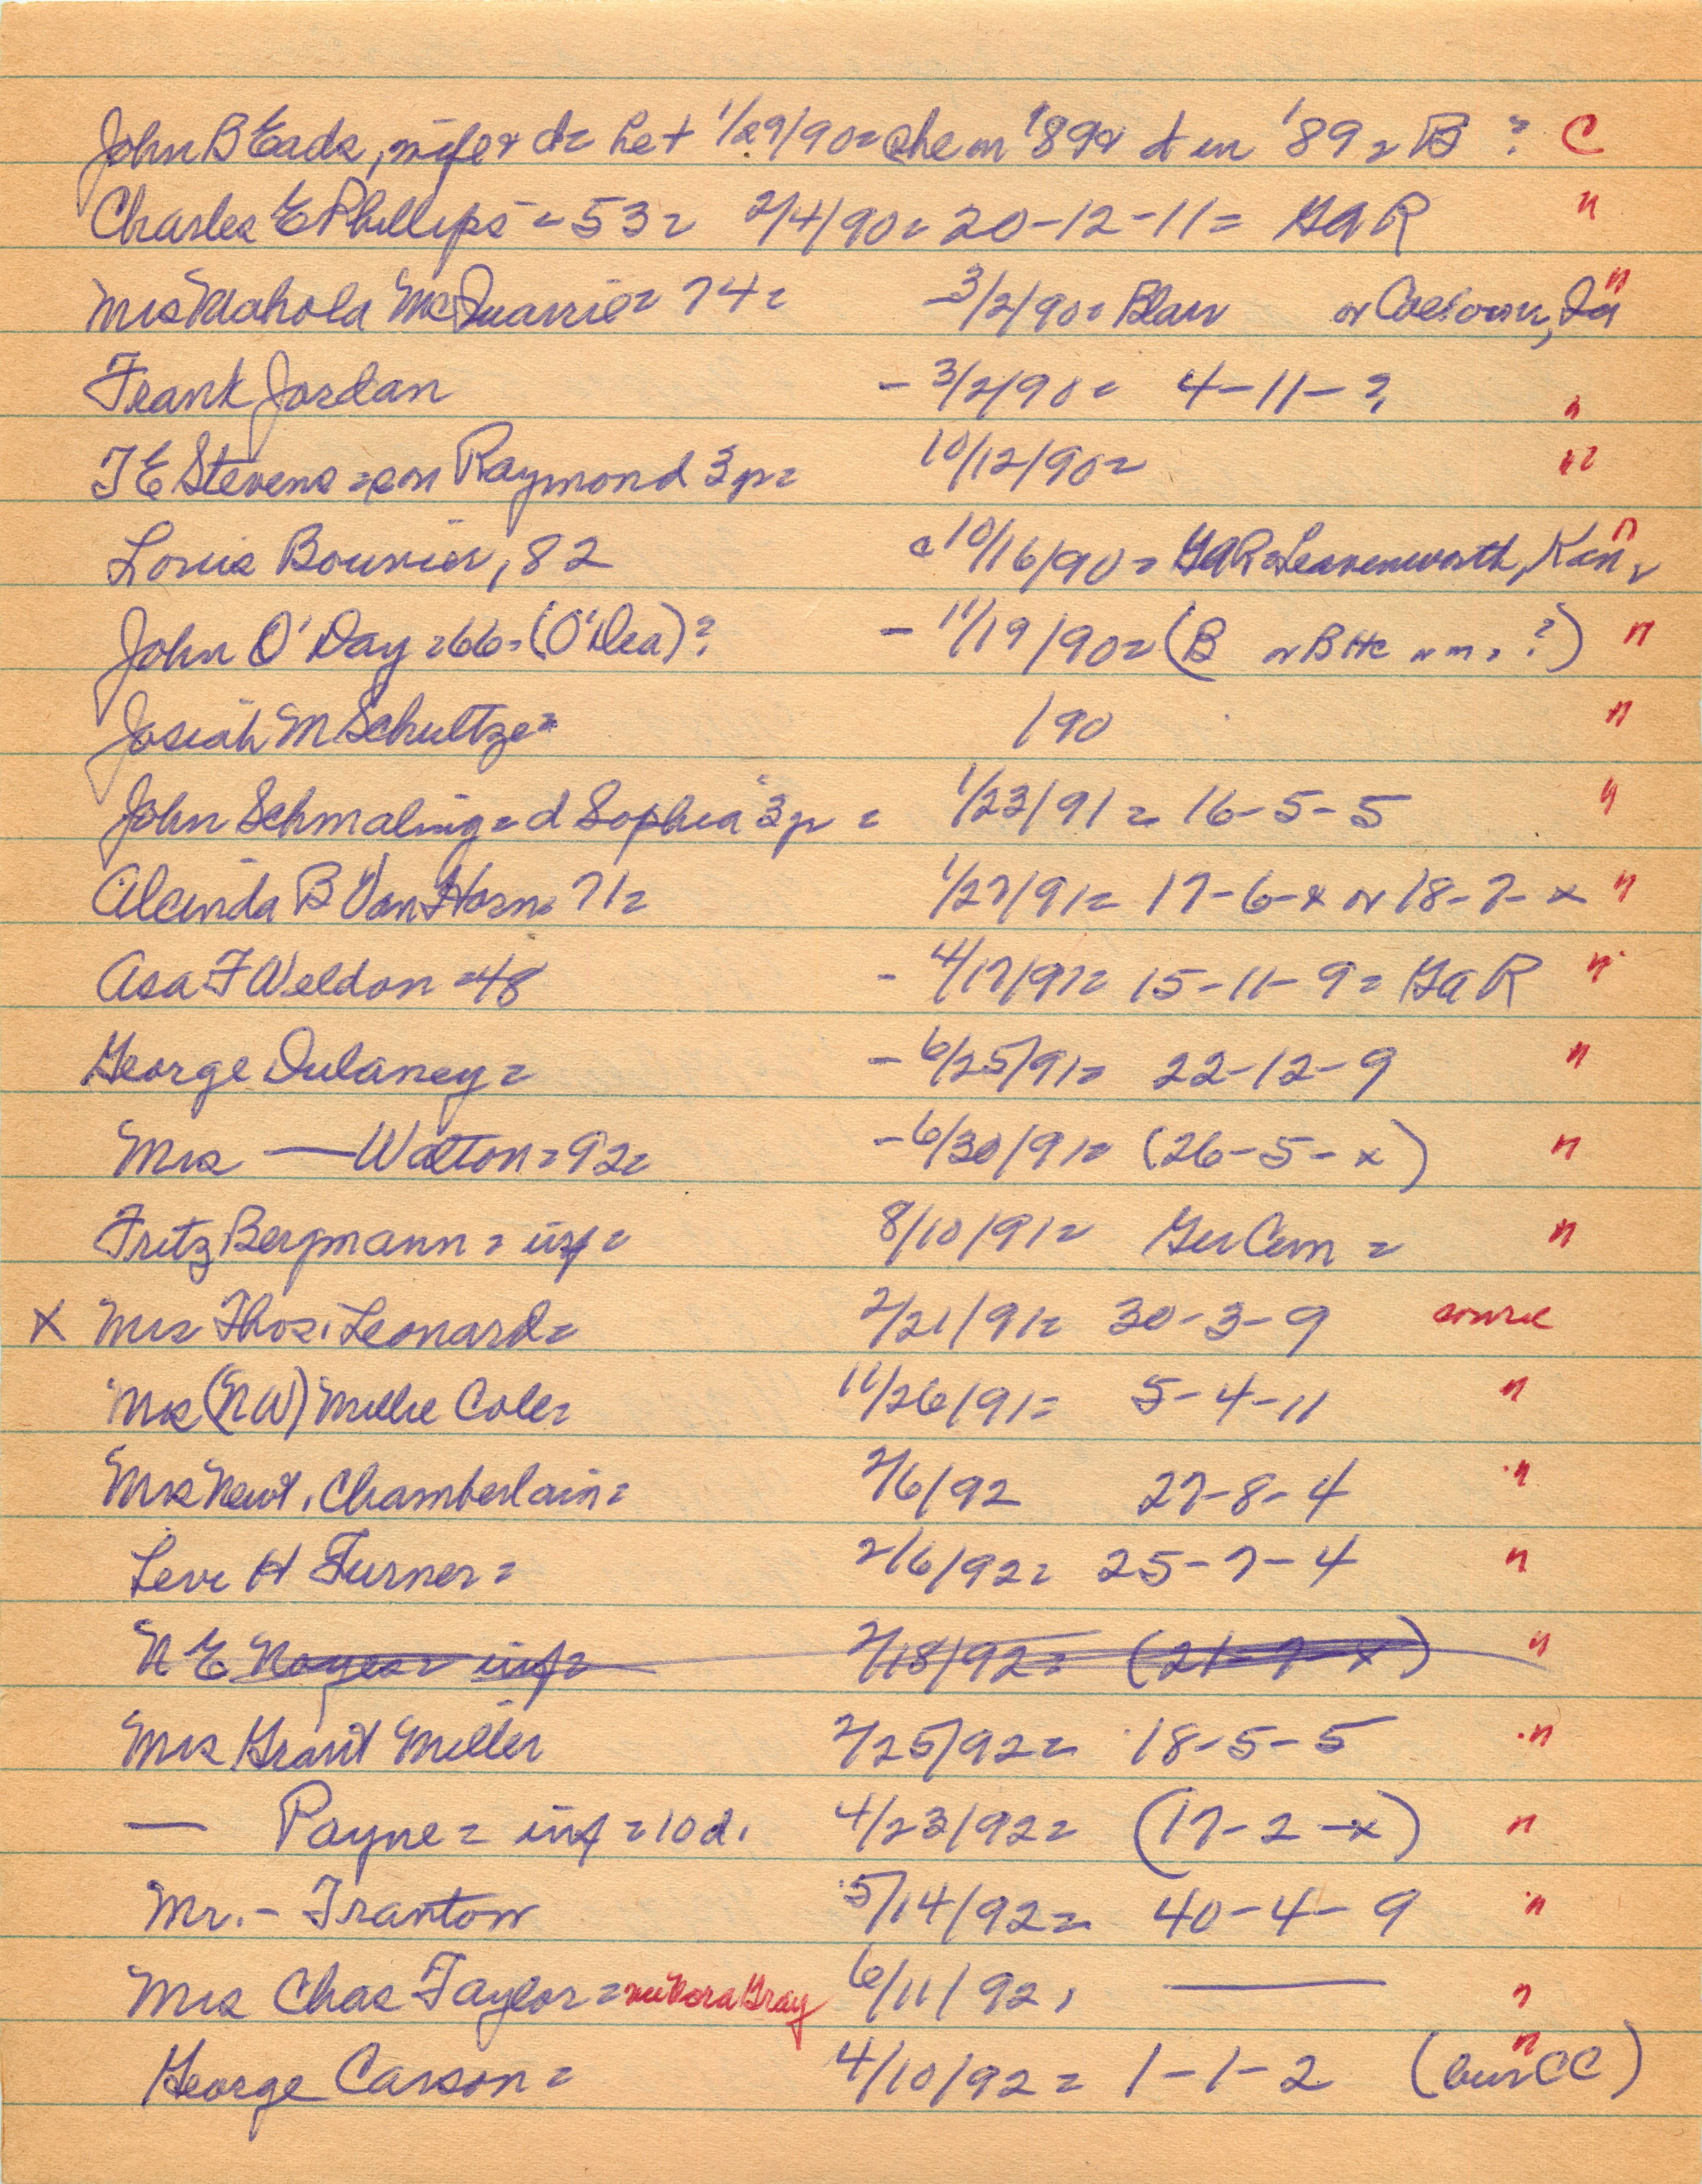 John B Eads, wife & d= bet 1/29/90= she m '89 & d in '89 = B ? C
Charles E Phillips = 53= 2/4/90= 20-12-11= GAR "
Mrs Mahola McQuarrie= 74= -3/2/90= Blair or Calhoun, Ia "
Frank Jordan - 3/2/90= 4-11-? "
T E Stevens = son Raymond 3 yr= 10/12/90= "
Louis Bouvier, 82 c 10/16/90= GAR Leavenworth, Kan, "
John O'Day =66= (O'Dea)? - 11/19/90= (B or B Hc or m. ?) "
Josiah M Schultze= /90 "
John Schmaling= d Sophia 3 yr = 1/23/91= 16-5-5 "
Alcinda B Van Horn= 71= 1/27/91= 17-6-x or 18-7-x "
Asa F Weldon =48 - 4/17/91= 15-11-9= GAR "
George Dulaney= - 6/25/91= 22-12-9 "
Mrs — Watton=92= - 6/30/91= (26-5-x) "
Fritz Bergmann = inf= 8/10/91= Ger Cem = "
X Mrs Thos. Leonard= 2/21/91= 30-3-9 source
Mrs (N W) Millie Cole= 11/26/91= 5-4-11 "
Mrs Newt. Chamberlain= 2/6/92 27-8-4 "
Levi H Turner= 2/6/92= 25-7-4 "
N E Noyes= inf= 2/18/92= (21-7-x) "
Mrs Grant Miller 2/25/92= 18-5-5 "
— Payne= inf =10 d. 4/23/92= (17-2-x) "
Mr. - Tranton 5/14/92= 40-4-9 "
Mrs Chas Taylor = nee Nora Gray 6/11/92, — "
George Carson= 4/10/92= 1-1-2 (bur CC) "